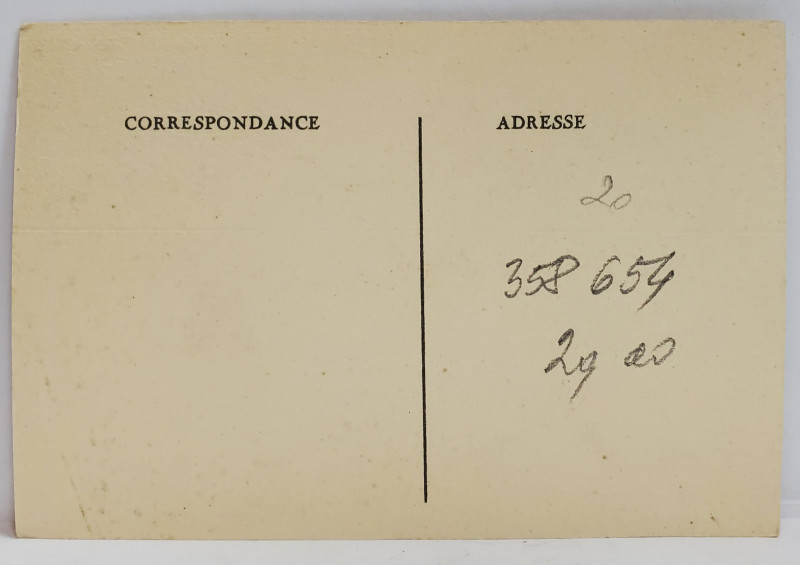 CORRESPONDANCE
ADRESSE
20
358 654
29